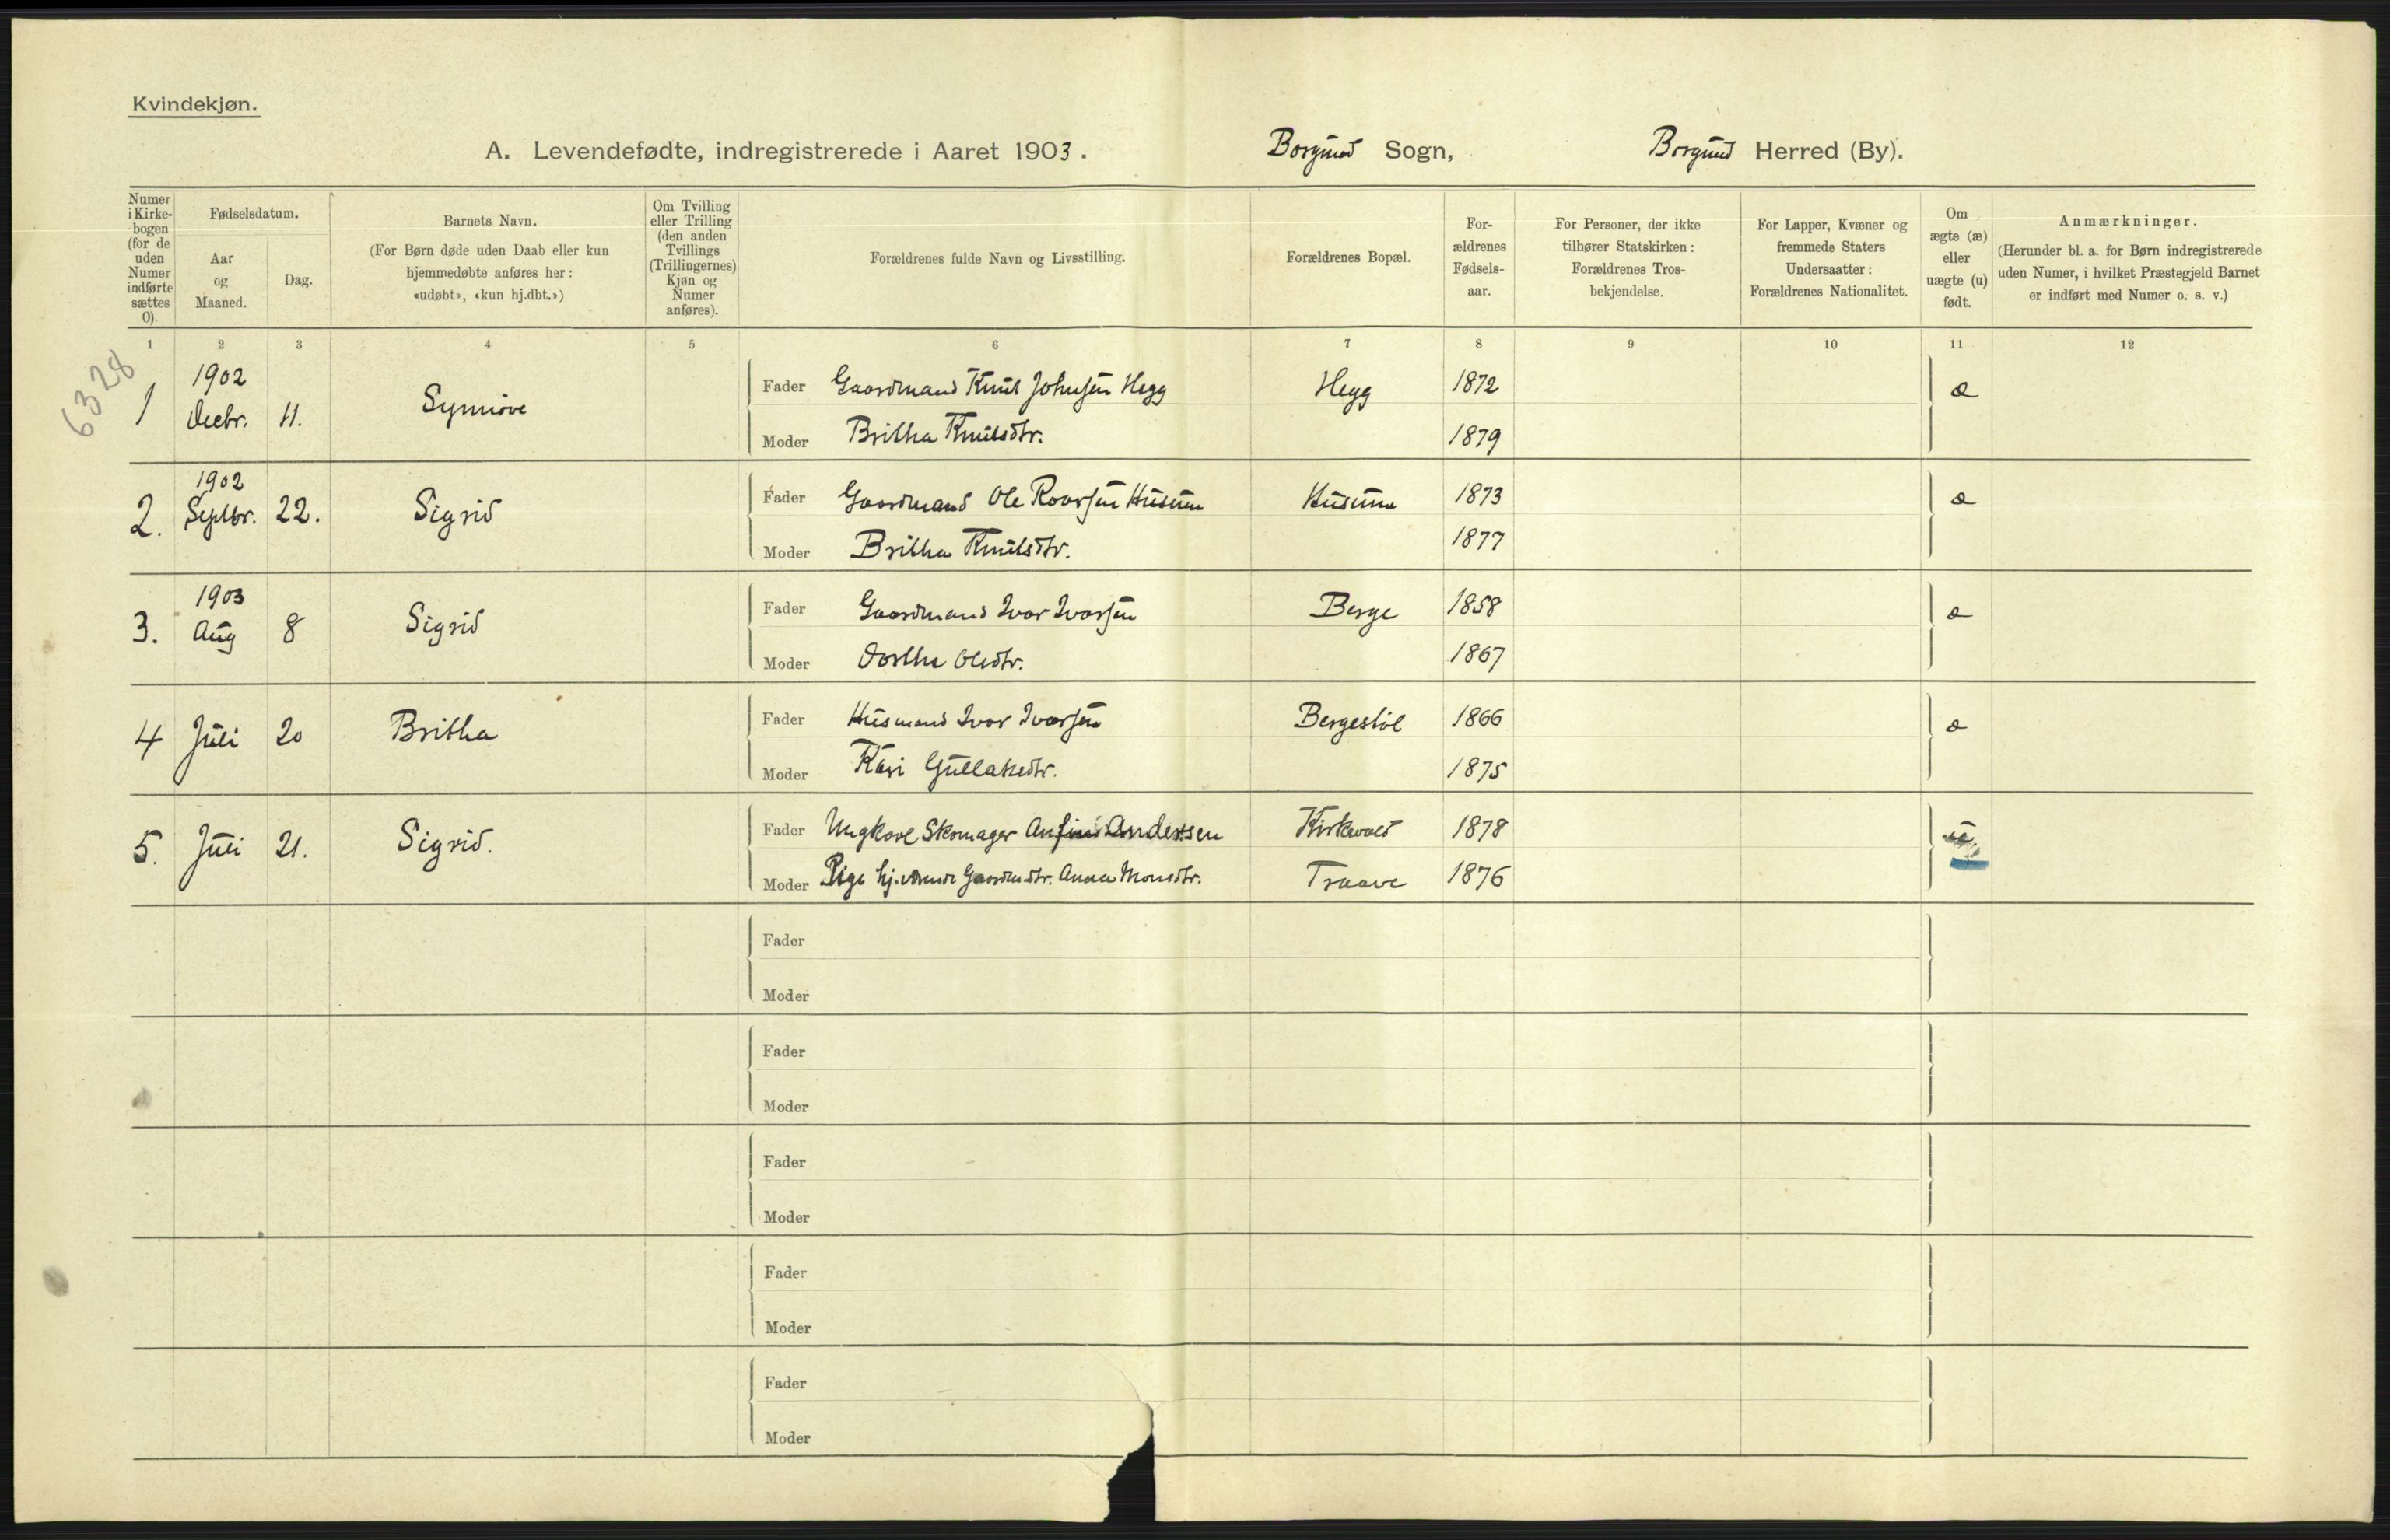 Kvindekjøn.
A. Levendefødte, indregistrerede i Aaret 1903. Borgund Sogn, Borgund Herred (By).
Numer i Kirkebogen (for de uden Numer indførte sættes 0)
Fødselsdatum.
Aar og Maaned.
Dag.
Barnets Navn.
(For Børn døde uden Daab eller kun hjemmedøbte anføres her: «udøbt», «kun hj.dbt.»)
Om Tvilling eller Trilling (den anden Tvillings (Trillingernes) Kjøn og Numer anføres).
Forældrenes fulde Navn og Livsstilling.
Forældrenes Bopæl.
Forældrenes Fødselsaar.
For Personer, der ikke tilhører Statskirken: Forældrenes Trosbekjendelse.
For Lapper, Kvæner og fremmede Staters Undersaatter: Forældrenes Nationalitet.
Om ægte (æ) eller uægte (u) født.
Anmærkninger.
(Herunder bl. a. for Børn indregistrerede uden Numer, i hvilket Præstegjeld Barnet er indført med Numer o. s. v.)
1 2 3 4 5 6 7 8 9 10 11 12
6328
1 1902 Decbr. 11. Synnøve Fader Gaardmand Knut Johnsen Hegg Hegg 1872 æ
Moder Britha Knutsdtr. 1879
2. 1902 Septbr. 22. Sigrid Fader Gaardmand Ole Roarsen Husum Husum 1873 æ
Moder Britha Knutsdtr. 1877
3. 1903 Aug 8 Sigrid Fader Gaardmand Ivar Ivarsen Berge 1858 æ
Moder Dorthe Olsdtr. 1867
4 Juli 20 Britha Fader Husmand Ivar Ivarsen Bergestøl 1866 æ
Moder Kari Gullaksdtr. 1875
5. Juli 21. Sigrid. Fader Ungkarl Skomager Anfind Andersen Kirkevold 1878 u.
Moder Pige hj.værende Gaardmdtr. Anna Monsdtr. Traave 1876
Fader
Moder
Fader
Moder
Fader
Moder
Fader
Moder
Fader
Moder